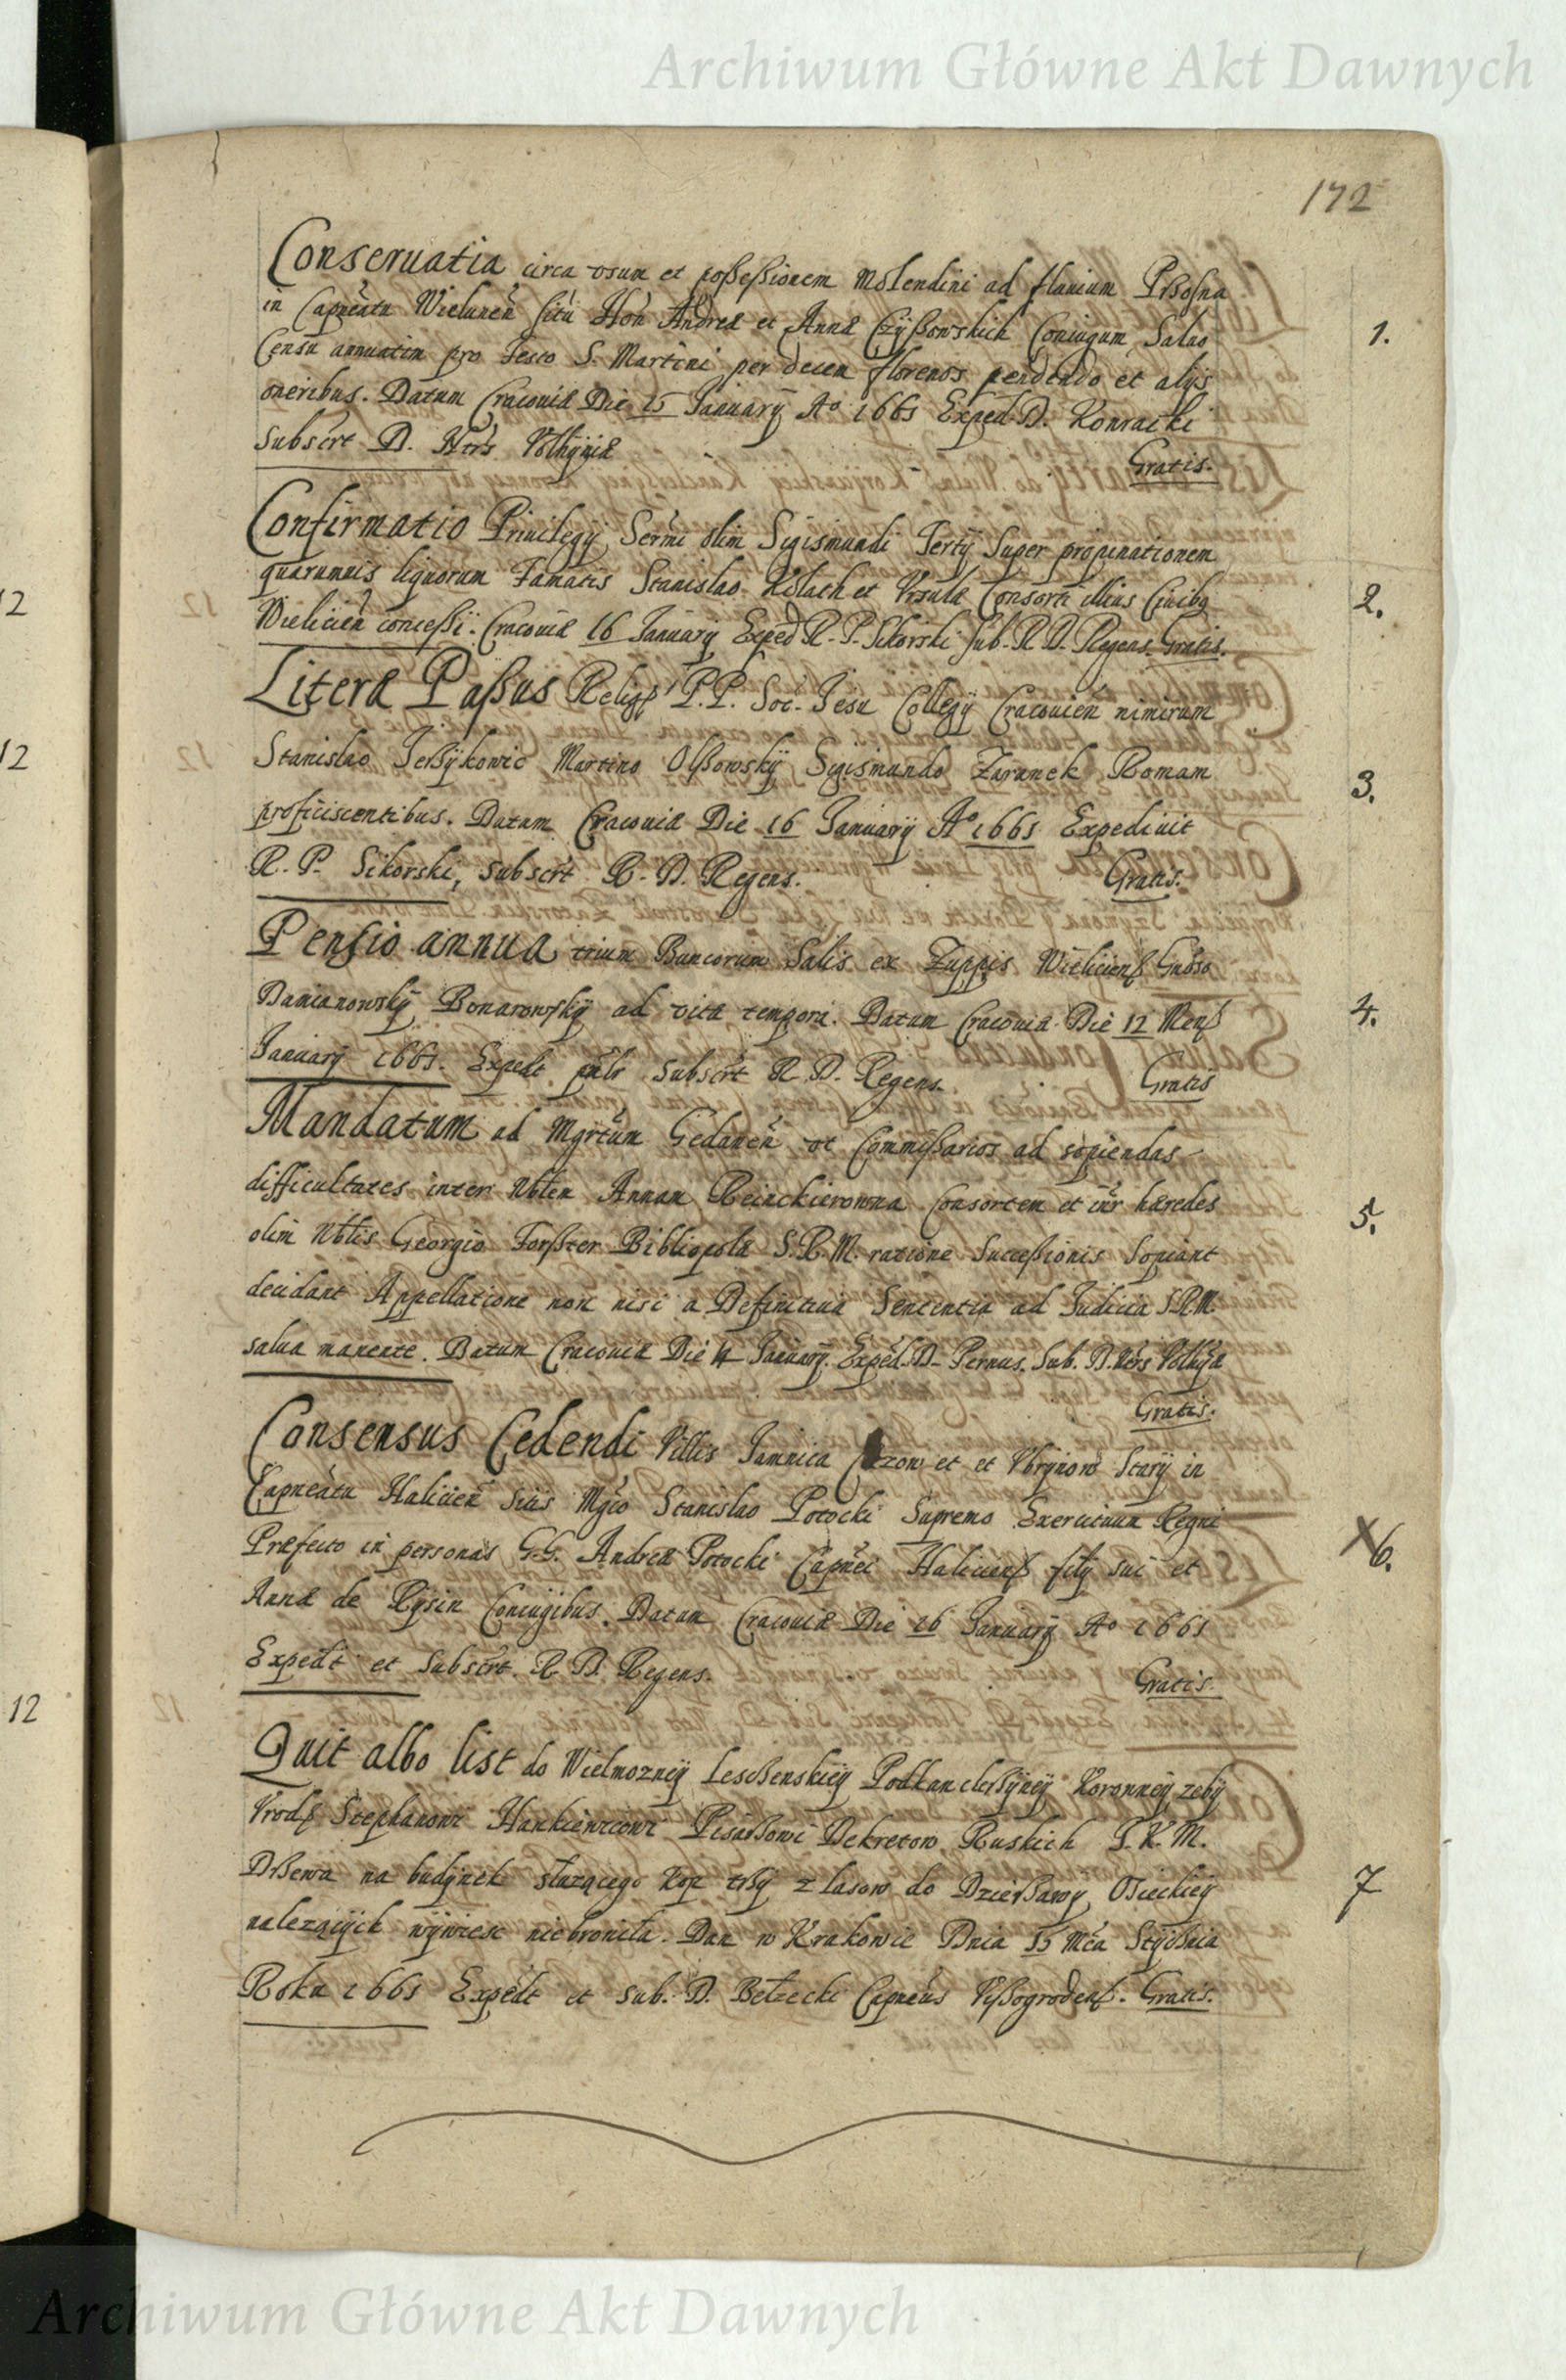 Archiwum Główne Akt Dawnych
172
Conseruatia circa vsum et possessionem Molendini ad fluuium Prßosna
in Capneatu Wielunen̄ sitū Hon Andreæ et Annæ Czyßowskich Coniugum Saluo
Censu annuatim pro Festo S. Martini per decem florenos pendendo et alijs
oneribus. Datum Cracouiæ Die 15 Januarij Ao 1661 Exped. D. Konracki
Subscrt D. Nors Volhyniæ
Gratis.
1.
Confirmatio Priuilegij Sermi olim Sigismundi Tertij Super propinationem
quarumuis liquorum Famatis Stanislao Kolach et Vrsulæ Consorti illius Ciuibq
Wielicien̄ concessi. Cracouiæ 16 Januarij Exped R. P. Sikorski Sub. R D. Regens. Gratis.
2.
Literæ Passus Religs P.P. Soc. Jesu Collegij Cracouien̄ nimirum
Stanislao Jerßykowic Martino Olßowskÿ Sigismundo Zaranek Romam
proficiscentibus. Datum Cracouiæ Die 16 Januarij Ao 1661 Expediuit
R. P. Sikorski, Subscrt R. D. Regens.
Gratis.
3.
Pensio annua trium Bancorum Salis ex Zuppis Wieliciens Gnoso
Damianowskÿ Bonarowskÿ ad vitæ tempora. Datum Cracouiæ Die 12 Mens
Januarij 1661. Expedt pnls Subscrt R. D. Regens.
Gratis
4.
Mandatum ad Mgrtum Gedanen̄ vt Commissarios ad sopiendas
difficultates inter Nblem Annam Reinckierowna Consortem et inr hæredes
olim Nblis Georgio Forßter Bibliopolæ S.R.M. ratione Successionis Sopiant
decidant Appellatione non nisi a Definitiua Sententia ad Judicia S.R.M.
salua manente. Datum Cracouiæ Die 14 Januarij. Exped. D. Pernus. Sub. D. Nors Volhyæ
Gratis.
5.
Consensus Cedendi Villis Jamnica Czow et et Vhrynow Stary in
Capneatu Halicien̄ Sitis Mgco Stanislao Potocki Supremo Exercituum Regni
Præfecto in personas G.G. Andreæ Potocki Capnei Haliciens filij sui et
Annæ de Rysin Coniugibus. Datum Cracouiæ Die 16 Januarij Ao 1661
Expedt et Subscrt R. D. Regens.
Gratis.
X6.
Quit albo list do Wielmozneÿ Lesczenskieÿ Podkanclerßyneÿ Koronneÿ zebÿ
Vrods Stephanowi Hankiewicowi Pisarßowi Dekretow Ruskich J. K. M.
Drßewa na budÿnek służącego kop trßÿ z lasow do Dzierßawÿ Osieckieÿ
nalezącÿch wÿwiesc niebronila. Dan w Krakowie Dnia 15 Mca Stÿcznia
Roku 1661 Expedt et Sub. D. Bełzecki Capneus Vissogrodens. Gratis.
7
12
12
12
Archiwum Główne Akt Dawnych